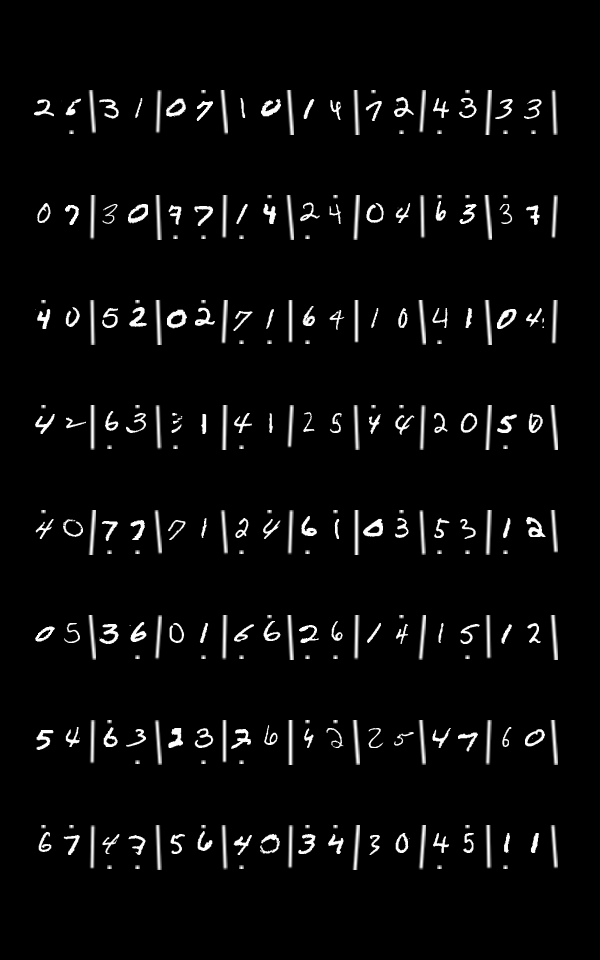 2 6̣ | 3 1 | 0 7̇ | 1 0 | 1 4 | 7̇ 2̣ | 4̣ 3̇ | 3̣ 3̣ |
0 7 | 3 0 | 7̣ 7̣ | 1̣ 4̇ | 2̣ 4̇ | 0 4 | 6̇ 3̣ | 3̇ 7 |
4̇ 0 | 5 2̇ | 0 2̇ | 7̣ 1̣ | 6̣ 4 | 1 0 | 4̣ 1 | 0 4 |
4̇ 2 | 6̣ 3̇ | 3̣ 1 | 4̣ 1 | 2 5 | 4̇ 4̇ | 2 0 | 5̣ 0 |
4̇ 0 | 7̣ 7̣ | 7 1 | 2̣ 4̇ | 6̣ 1 | 0 3̇ | 5̣ 3 | 1̣ 2 |
0 5 | 3 6̣ | 0 1̣ | 6 6̇ | 2̣ 6 | 1 4̇ | 1 5̣ | 1 2 |
5 4 | 6̇ 3̣ | 2 3̣ | 2̣ 6 | 4̇ 2̇ | 2 5 | 4 7 | 6 0 |
6̇ 7̇ | 4̣ 7̣ | 5 6̇ | 4̣ 0 | 3̇ 4̇ | 3 0 | 4̣ 5̇ | 1̣ 1 |